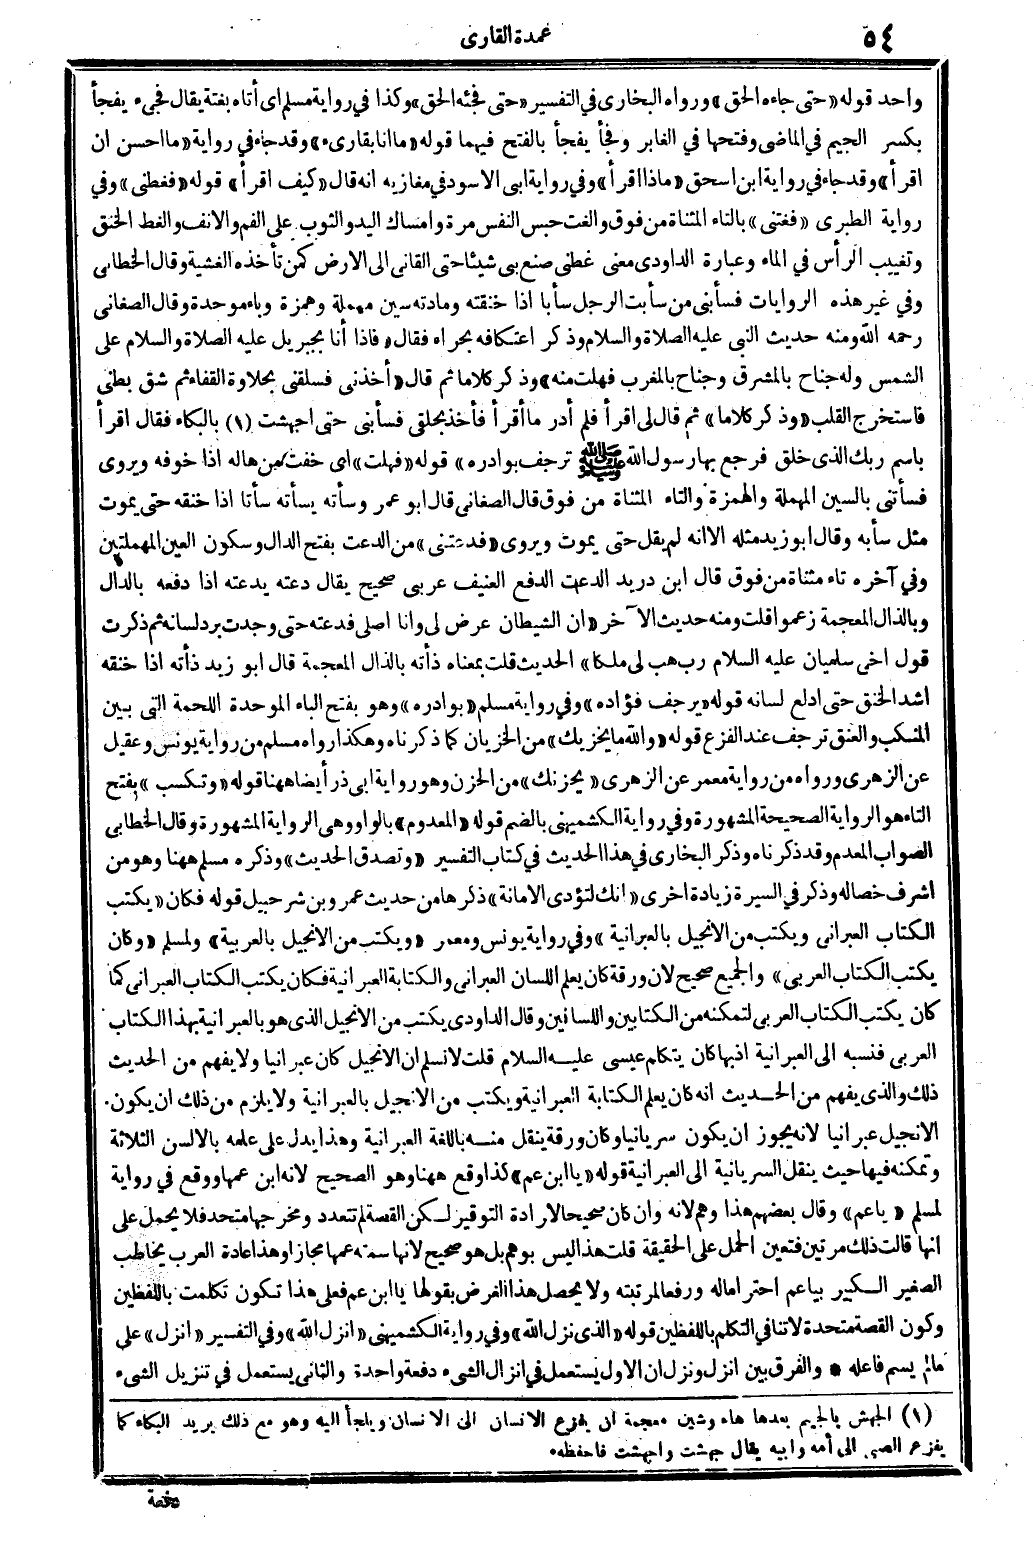 ٥٤
عمدة القارى
واحد قوله «حتى جاءه الحق» ورواه البخارى في التفسير «حتى فجئه الحق» وكذا في رواية مسلم اى أتاه بغتة يقال فجىء يفجأ
بكسر الجيم في الماضى وفتحها في الغابر وفجأ يفجأ بالفتح فيهما قوله «ما انا بقارىء» وقد جاء في رواية «ما احسن ان
اقرأ» وقد جاء في رواية ابن اسحق «ماذا اقرأ» وفي رواية ابى الاسود في مغازيه انه قال «كيف اقرأ» قوله «فغطنى» وفي
رواية الطبرى «فغتنى» بالتاء المثناة من فوق والغت حبس النفس مرة وامساك اليد والثوب على الفم والانف والغط الخنق
وتغييب الرأس في الماء وعبارة الداودى معنى غطنى صنع بى شيئا حتى القانى الى الارض كمن تأخذه الغشية وقال الخطابى
وفي غير هذه الروايات فسأبنى من سأبت الرجل سأبا اذا خنقته ومادته سين مهملة وهمزة وباء موحدة وقال الصغانى
رحمه الله ومنه حديث النبى عليه الصلاة والسلام وذكر اعتكافه بحراء فقال «فاذا أنا بجبريل عليه الصلاة والسلام على
الشمس وله جناح بالمشرق وجناح بالمغرب فهلت منه» وذكر كلاما ثم قال «أخذنى فسلقنى بحلاوة القفاء ثم شق بطنى
فاستخرج القلب «وذكر كلاما» ثم قال لى اقرأ فلم أدر ما أقرأ فأخذ بحلقى فسأبنى حتى اجهشت (١) بالبكاء فقال اقرأ
باسم ربك الذى خلق فرجع بها رسول الله ﷺ ترجف بوادره» قوله «فهلت» اى خفت من هاله اذا خوفه ويروى
فسأتنى بالسين المهملة والهمزة والتاء المثناة من فوق قال الصغانى قال ابو عمر وسأته يسأته سأتا اذا خنقه حتى يموت
مثل سأبه وقال ابو زيد مثله الا انه لم يقل حتى يموت ويروى «فدعتنى» من الدعت بفتح الدال وسكون العين المهملتين
وفي آخره تاء مثناة من فوق قال ابن دريد الدعت الدفع العنيف عربى صحيح يقال دعته يدعته اذا دفعه بالدال
وبالذال المعجمة زعموا قلت ومنه حديث الآخر «ان الشيطان عرض لى وانا اصلى فدعته حتى وجدت برد لسانه ثم ذكرت
قول اخى سليمان عليه السلام رب هب لى ملكا» الحديث قلت بمعناه ذأته بالذال المعجمة قال ابو زيد ذأته اذا خنقه
اشد الخنق حتى ادلع لسانه قوله «يرجف فؤاده» وفي رواية مسلم «بوادره» وهو بفتح الباء الموحدة اللحمة التى بين
المنكب والعنق ترجف عند الفزع قوله «والله ما يخزيك» من الخزيان كما ذكرناه وهكذا رواه مسلم من رواية يونس وعقيل
عن الزهرى ورواه من رواية معمر عن الزهرى «يحزنك» من الحزن وهو رواية ابى ذر أيضا ههنا قوله «وتكسب» بفتح
التاء هو الرواية الصحيحة المشهورة وفي رواية الكشميهنى بالضم قوله «المعدوم» بالواو وهى الرواية المشهورة وقال الخطابى
الصواب المعدم وقد ذكرناه وذكر البخارى في هذا الحديث في كتاب التفسير «وتصدق الحديث» وذكره مسلم ههنا وهو من
اشرف خصاله وذكر في السيرة زيادة اخرى «انك لتؤدى الامانة» ذكرها من حديث عمرو بن شرحبيل قوله فكان «يكتب
الكتاب العبرانى ويكتب من الانجيل بالعبرانية» وفي رواية يونس ومعمر «ويكتب من الانجيل بالعربية» ولمسلم «وكان
يكتب الكتاب العربى» والجميع صحيح لان ورقة كان يعلم اللسان العبرانى والكتابة العبرانية فكان يكتب الكتاب العبرانى كما
كان يكتب الكتاب العربى لتمكنه من الكتابين واللسانين وقال الداودى يكتب من الانجيل الذى هو بالعبرانية بهذا الكتاب
العربى فنسبه الى العبرانية اذ بها كان يتكلم عيسى عليه السلام قلت لا نسلم ان الانجيل كان عبرانيا ولا يفهم من الحديث
ذلك والذى يفهم من الحديث انه كان يعلم الكتابة العبرانية ويكتب من الانجيل بالعبرانية ولا يلزم من ذلك ان يكون
الانجيل عبرانيا لانه يجوز ان يكون سريانيا وكان ورقة ينقل منه باللغة العبرانية وهذا يدل على علمه بالالسن الثلاثة
وتمكنه فيها حيث ينقل السريانية الى العبرانية قوله «يا ابن عم» كذا وقع ههنا وهو الصحيح لانه ابن عمها ووقع في رواية
لمسلم «ياعم» وقال بعضهم هذا وهم لانه وان كان صحيحا لارادة التوقير لكن القصة لم تتعدد ومخرجها متحد فلا يحمل على
انها قالت ذلك مرتين فتعين الحمل على الحقيقة قلت هذا ليس بوهم بل هو صحيح لانها سمته عمها مجازا وهذا عادة العرب يخاطب
الصغير الكبير بياعم احتراما له ورفعا لمرتبته ولا يحصل هذا الغرض بقولها يا ابن عم فعلى هذا تكون تكلمت باللفظين
وكون القصة متحدة لا تنافى التكلم باللفظين قوله «الذى نزل الله» وفي رواية الكشميهنى «انزل الله» وفي التفسير «انزل» على
مالم يسم فاعله * والفرق بين انزل ونزل ان الاول يستعمل في انزال الشىء دفعة واحدة والثانى يستعمل في تنزيل الشىء
(١) الجهش بالجيم بعدها هاء وشين معجمة ان يفزع الانسان الى الانسان ويلجأ اليه وهو مع ذلك يريد البكاء كما
يفزع الصبى الى أمه وابيه يقال جهشت واجهشت فاحفظه.